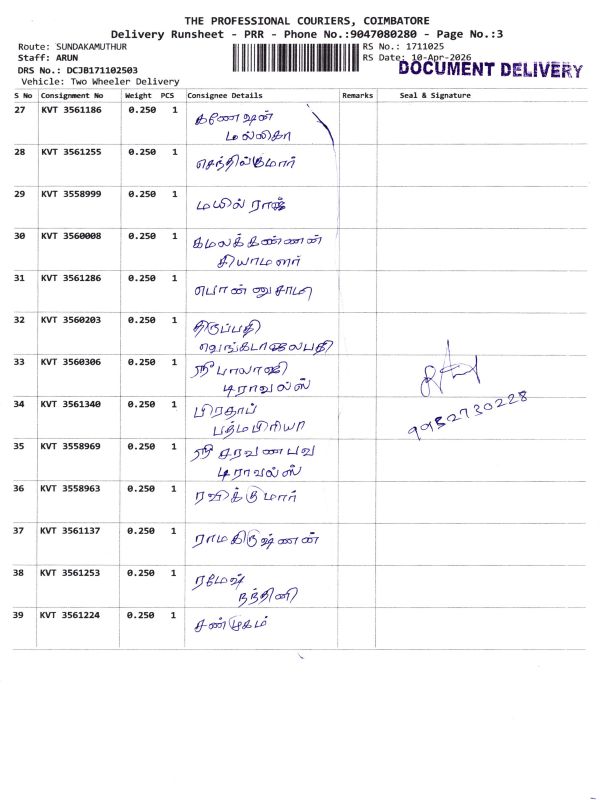 THE PROFESSIONAL COURIERS, COIMBATORE
Delivery Runsheet - PRR - Phone No.:9047080280 - Page No.:3
Route: SUNDAKAMUTHUR RS No.: 1711025
Staff: ARUN RS Date: 10-Apr-2026
DRS No.: DCJB171102503 DOCUMENT DELIVERY
Vehicle: Two Wheeler Delivery
S No Consignment No Weight PCS Consignee Details Remarks Seal & Signature
27 KVT 3561186 0.250 1 கணேஷன்
மல்லிகா
28 KVT 3561255 0.250 1 செந்தில்குமார்
29 KVT 3558999 0.250 1 மயில் ராஜ்
30 KVT 3560008 0.250 1 கமலக்கண்ணன்
சியாமளா
31 KVT 3561286 0.250 1 பொன்னுசாமி
32 KVT 3560203 0.250 1 திருப்பதி
வெங்கடாஜலபதி
33 KVT 3560306 0.250 1 ஸ்ரீ பாலாஜி
டிராவல்ஸ்
34 KVT 3561340 0.250 1 பிரதாப்
பத்மபிரியா
9952730228
35 KVT 3558969 0.250 1 ஸ்ரீ சரவணபவ
டிராவல்ஸ்
36 KVT 3558963 0.250 1 ரவிக்குமார்
37 KVT 3561137 0.250 1 ராமகிருஷ்ணன்
38 KVT 3561253 0.250 1 ரமேஷ்
நந்தினி
39 KVT 3561224 0.250 1 சண்முகம்